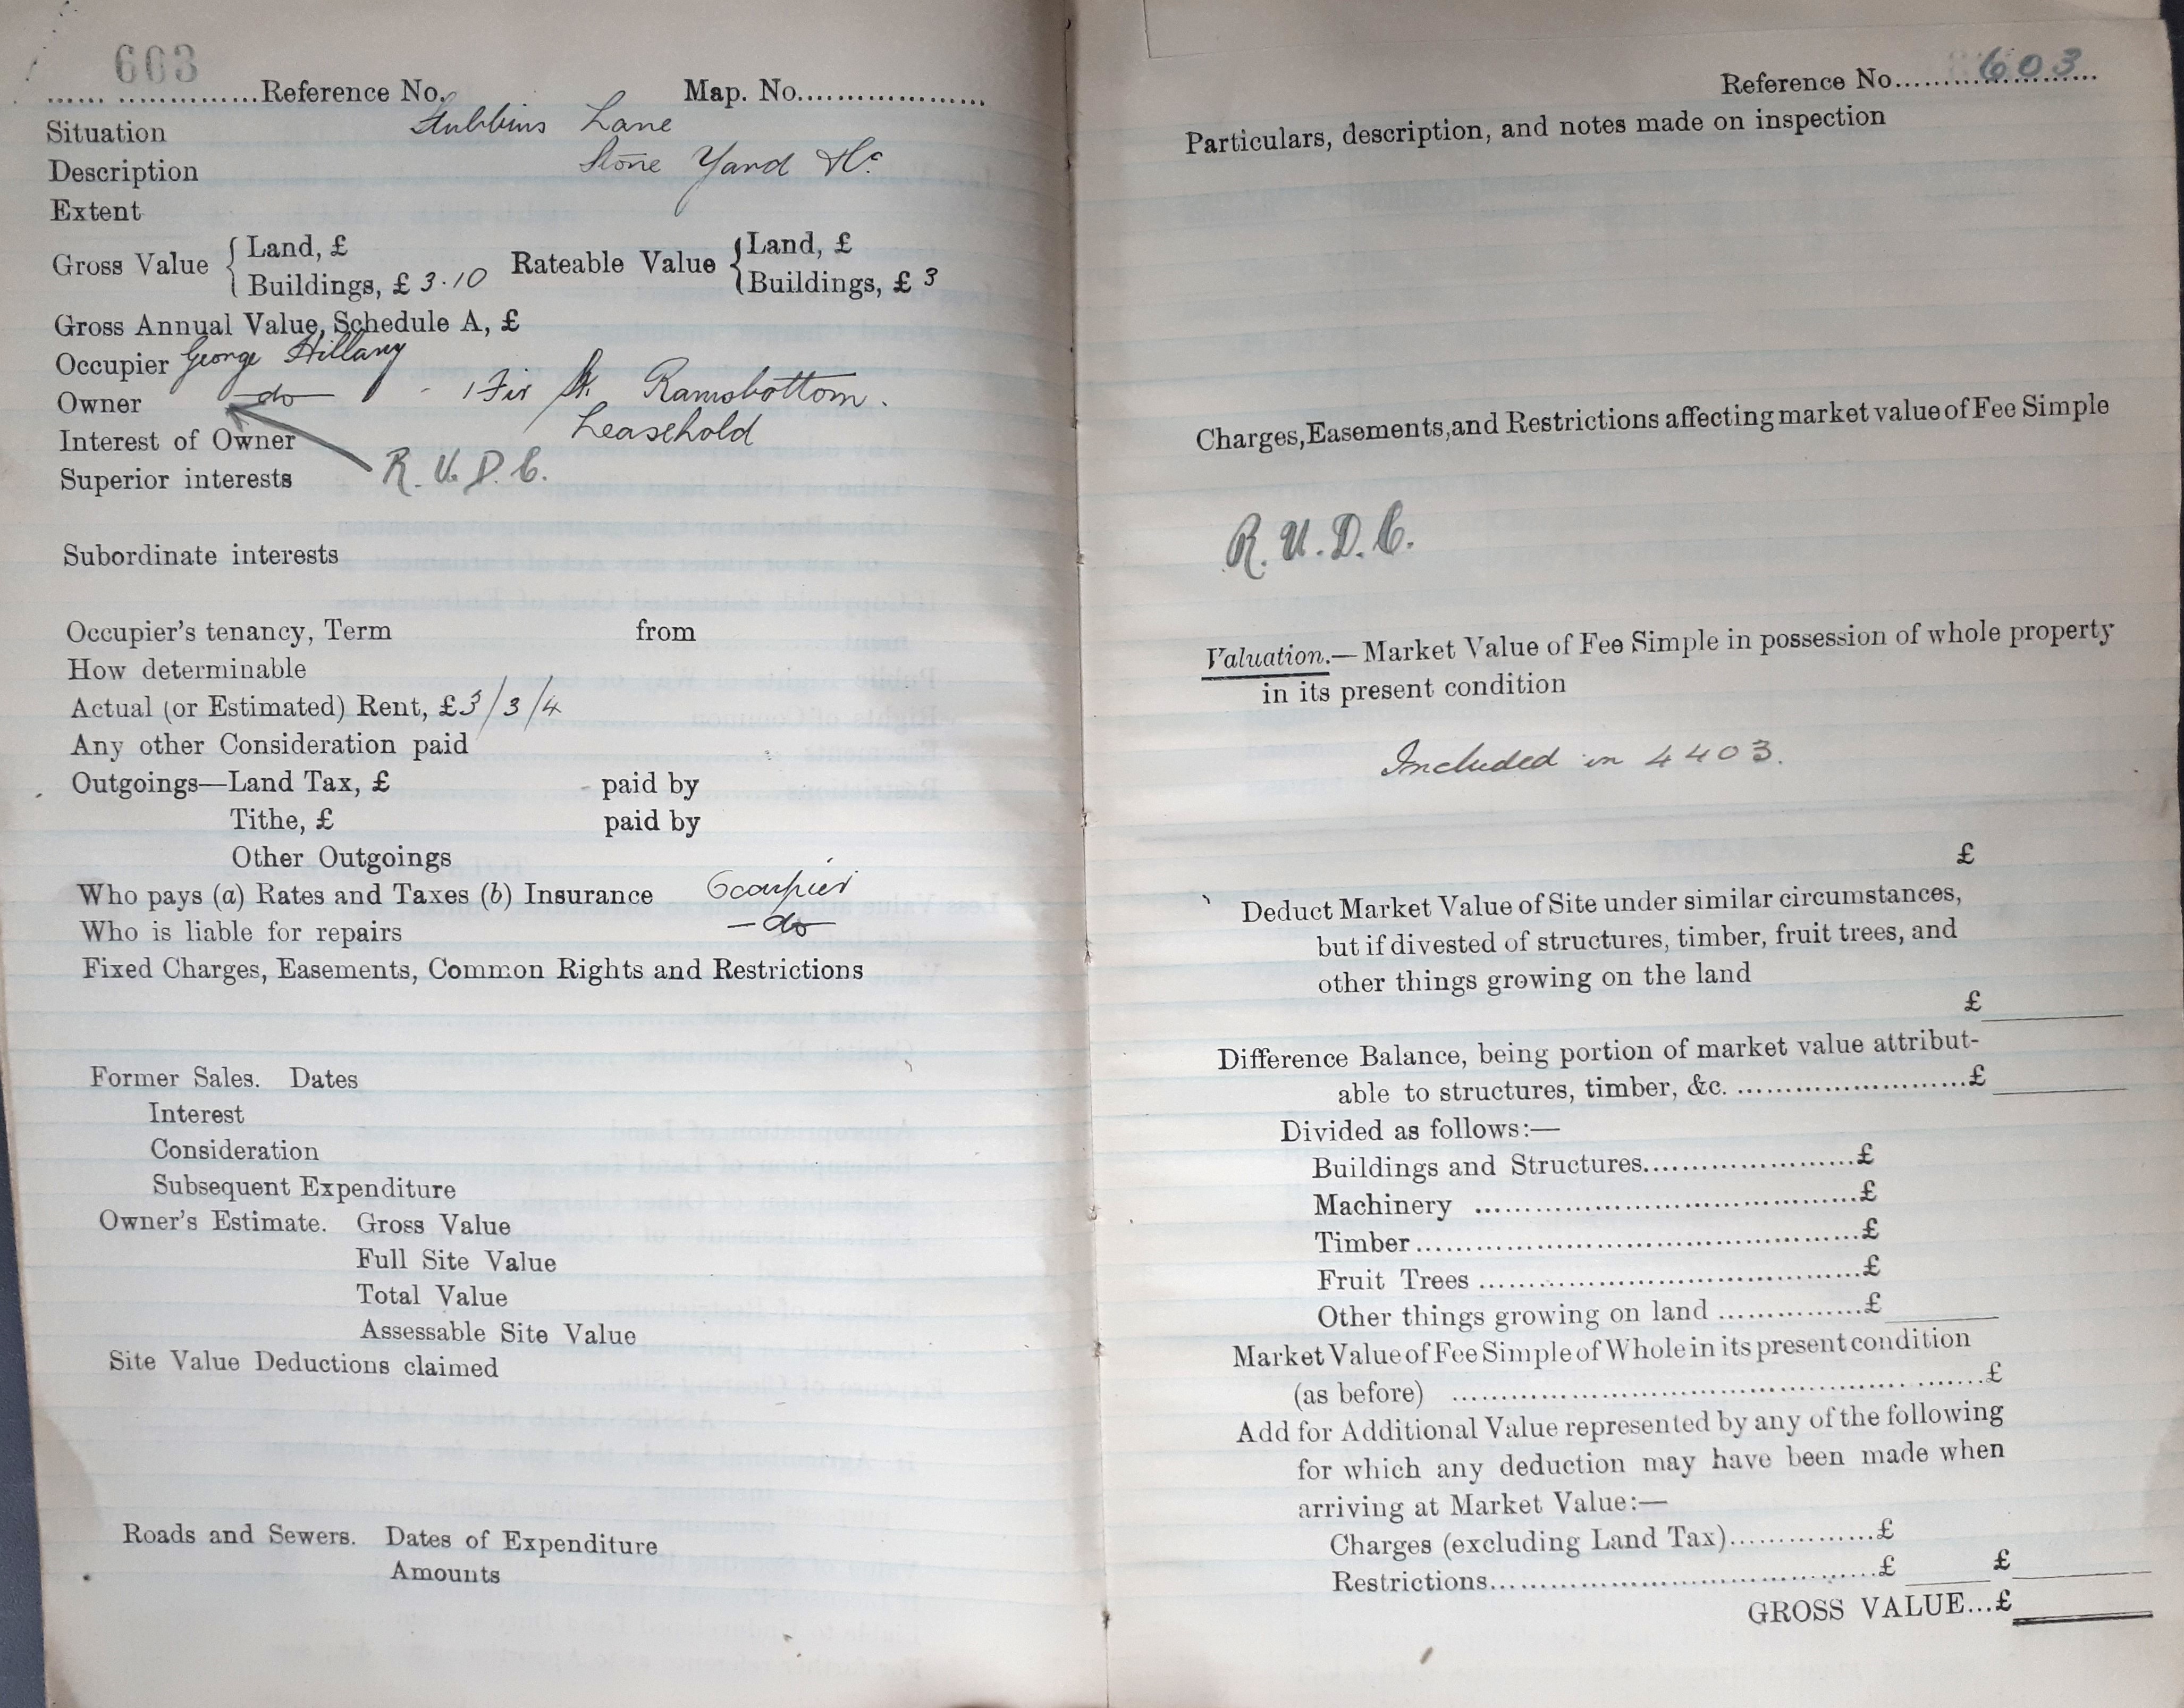 603
...... ..............Reference No. Map. No....................
Situation Stubbins Lane
Description Stone Yard &c
Extent
Gross Value { Land, £ Rateable Value { Land, £
Buildings, £ 3.10 Buildings, £ 3
Gross Annual Value, Schedule A, £
Occupier George Hillary
Owner do - 1 Fir St. Ramsbottom.
Interest of Owner Leasehold
Superior interests R. U. D. C.
Subordinate interests
Occupier's tenancy, Term from
How determinable
Actual (or Estimated) Rent, £3/3/4
Any other Consideration paid
Outgoings—Land Tax, £ paid by
Tithe, £ paid by
Other Outgoings
Who pays (a) Rates and Taxes (b) Insurance Occupier
Who is liable for repairs — do —
Fixed Charges, Easements, Common Rights and Restrictions
Former Sales. Dates
Interest
Consideration
Subsequent Expenditure
Owner's Estimate. Gross Value
Full Site Value
Total Value
Assessable Site Value
Site Value Deductions claimed
Roads and Sewers. Dates of Expenditure
Amounts
Reference No....603....
Particulars, description, and notes made on inspection
Charges, Easements, and Restrictions affecting market value of Fee Simple
R. U. D. C.
Valuation.—Market Value of Fee Simple in possession of whole property
in its present condition
Included in 4403.
£
Deduct Market Value of Site under similar circumstances,
but if divested of structures, timber, fruit trees, and
other things growing on the land
£
Difference Balance, being portion of market value attribut-
able to structures, timber, &c. .........................£
Divided as follows:—
Buildings and Structures.......................£
Machinery .........................................£
Timber................................................£
Fruit Trees .........................................£
Other things growing on land ...............£
Market Value of Fee Simple of Whole in its present condition
(as before) ..........................................................£
Add for Additional Value represented by any of the following
for which any deduction may have been made when
arriving at Market Value:—
Charges (excluding Land Tax)...............£
Restrictions..........................................£ £
GROSS VALUE...£